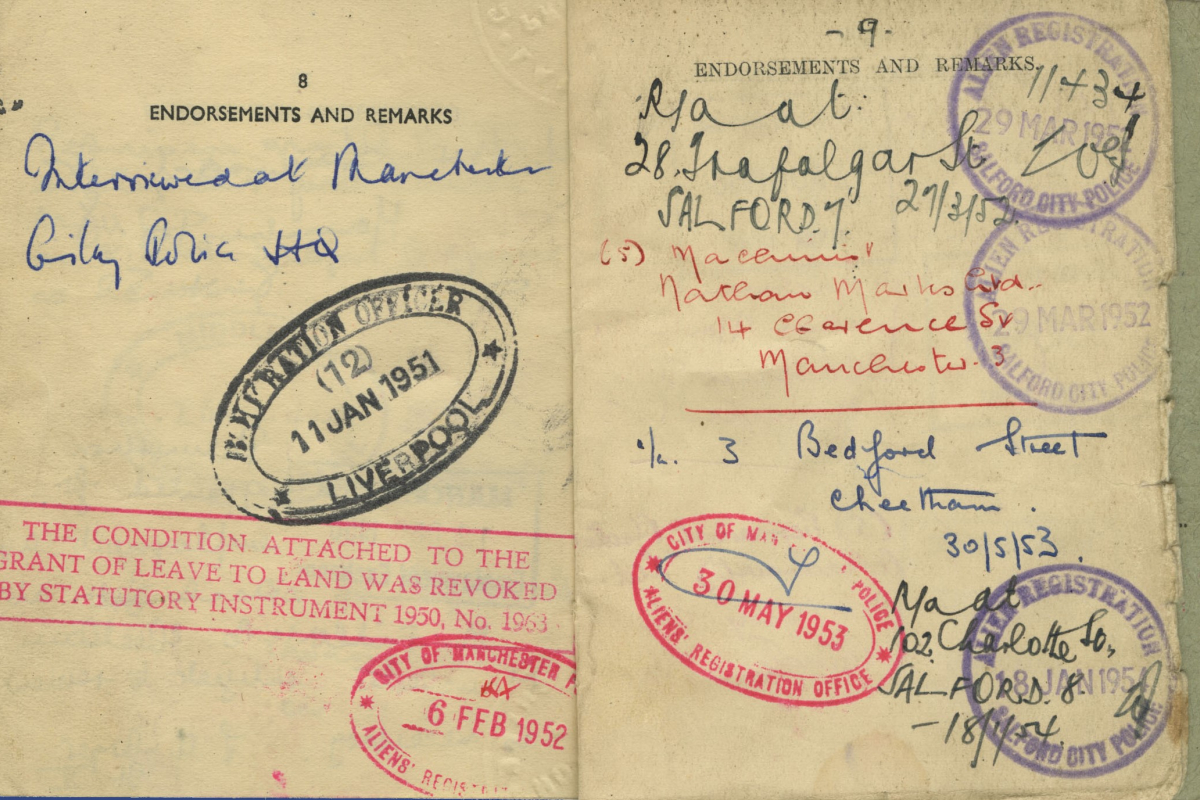 8
ENDORSEMENTS AND REMARKS
Interviewed at Manchester
City Police HQ
IMMIGRATION OFFICER
(12)
11 JAN 1951
LIVERPOOL
THE CONDITION ATTACHED TO THE
GRANT OF LEAVE TO LAND WAS REVOKED
BY STATUTORY INSTRUMENT 1950, No. 1963
CITY OF MANCHESTER P
6 FEB 1952
ALIENS' REGIST
- 9 -
ENDORSEMENTS AND REMARKS.
R/a at.
11434
28. Trafalgar St
SALFORD. 7. 27/3/52.
ALIEN REGISTRATI
29 MAR 195
SALFORD CITY POLICE
(5) Machinist
Nathan Marks Ltd.
14 Clarence St
Manchester. 3
ALIEN REGISTRATION
29 MAR 1952
SALFORD CITY POLICE
3 Bedford Street
Cheetham.
30/5/53.
CITY OF MAN POLICE
30 MAY 1953
ALIENS' REGISTRATION OFFICE
R/a at
102. Charlotte St.,
SALFORD. 8
- 18/1/54.
ALIEN REGISTRATION
18 JAN 1954
SALFORD CITY POLICE